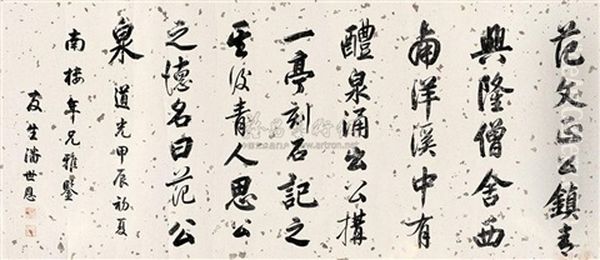 范文正公鎮青
興隆僧舍西
南洋溪中有
醴泉涌出公搆
一亭刻石記之
其後青人思公
之德名曰范公
泉 道光甲辰初夏
南樓年兄雅鑒
友生潘世恩
www.artron.net